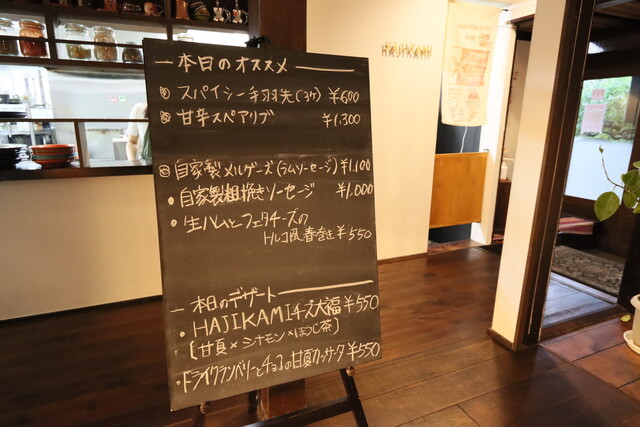 HAJIKAMI
本日のオススメ
◎ スパイシー手羽先(3ケ) ¥600
◎ 甘辛スペアリブ ¥1,300
◎ 自家製メルゲーズ(ラムソーセージ) ¥1,100
・自家製粗挽きソーセージ ¥1,000
・生ハムとフェタチーズの
トルコ風春巻き ¥550
本日のデザート
・HAJIKAMIチーズ大福 ¥550
[甘夏×シナモン×ほうじ茶]
・ドライクランベリーとチョコの甘夏カッサータ ¥550